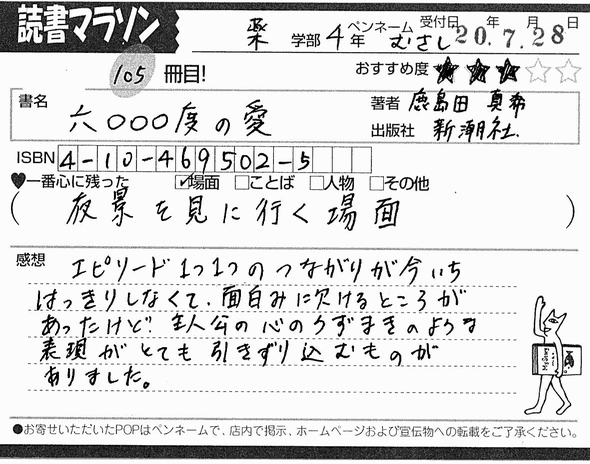 読書マラソン
薬 学部 4 年 ペンネーム むさし 受付日 20年 7月 28日
105 冊目! おすすめ度 ★★★☆☆
書名 六〇〇〇度の愛
著者 鹿島田 真希
出版社 新潮社.
ISBN 4-10-469502-5
♥一番心に残った ☑場面 □ことば □人物 □その他
(夜景を見に行く場面)
感想 エピソード1つ1つのつながりが今いち
はっきりしなくて、面白みに欠けるところが
あったけど、主人公の心のうずまきのような
表現がとても引きずり込むものが
ありました。
●お寄せいただいたPOPはペンネームで、店内で掲示、ホームページおよび宣伝物への転載をご了承ください。